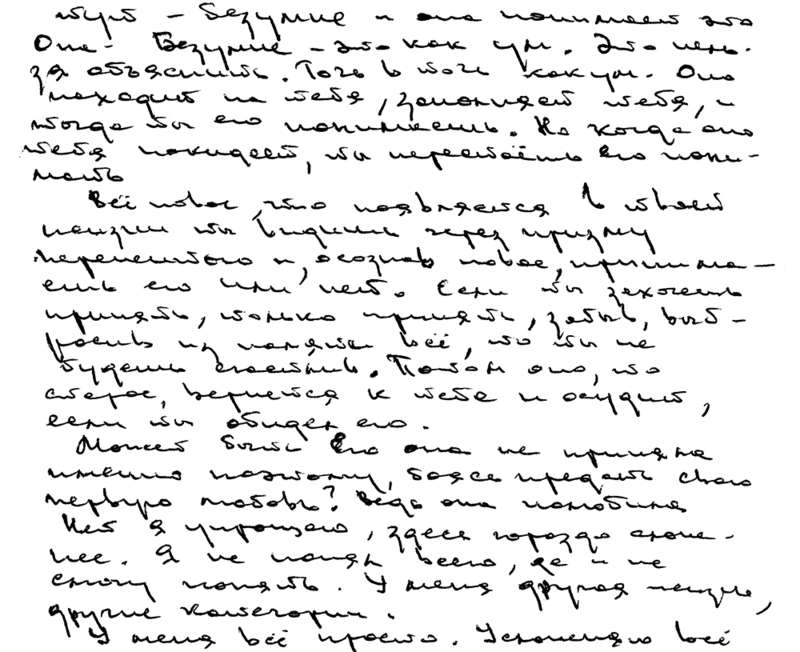 тут - безумие и она понимает это
Она - Безумие - это как ум. Это нель-
зя объяснить. Точь в точь как ум. Оно
находит на тебя, заполняет тебя, и
тогда ты его понимаешь. Но когда оно
тебя покидает, ты перестаёшь его пони-
мать
Всё новое, что появляется в твоей
жизни ты видишь через призму
пережитого и, осознав новое, принима-
ешь его или нет. Если ты захочешь
принять, только принять, забыв, выб-
росив из памяти всё, то ты не
будешь счастлив. Потом оно, то
старое, вернётся к тебе и осудит,
если ты обидел его.
Может быть Его она не приняла
именно поэтому, боясь предать свою
первую любовь? Ведь она полюбила
Нет я упрощаю, здесь гораздо слож-
нее. Я не понял всего, да и не
смогу понять. У меня другая жизнь,
другие категории.
У меня всё просто. Усложняю всё